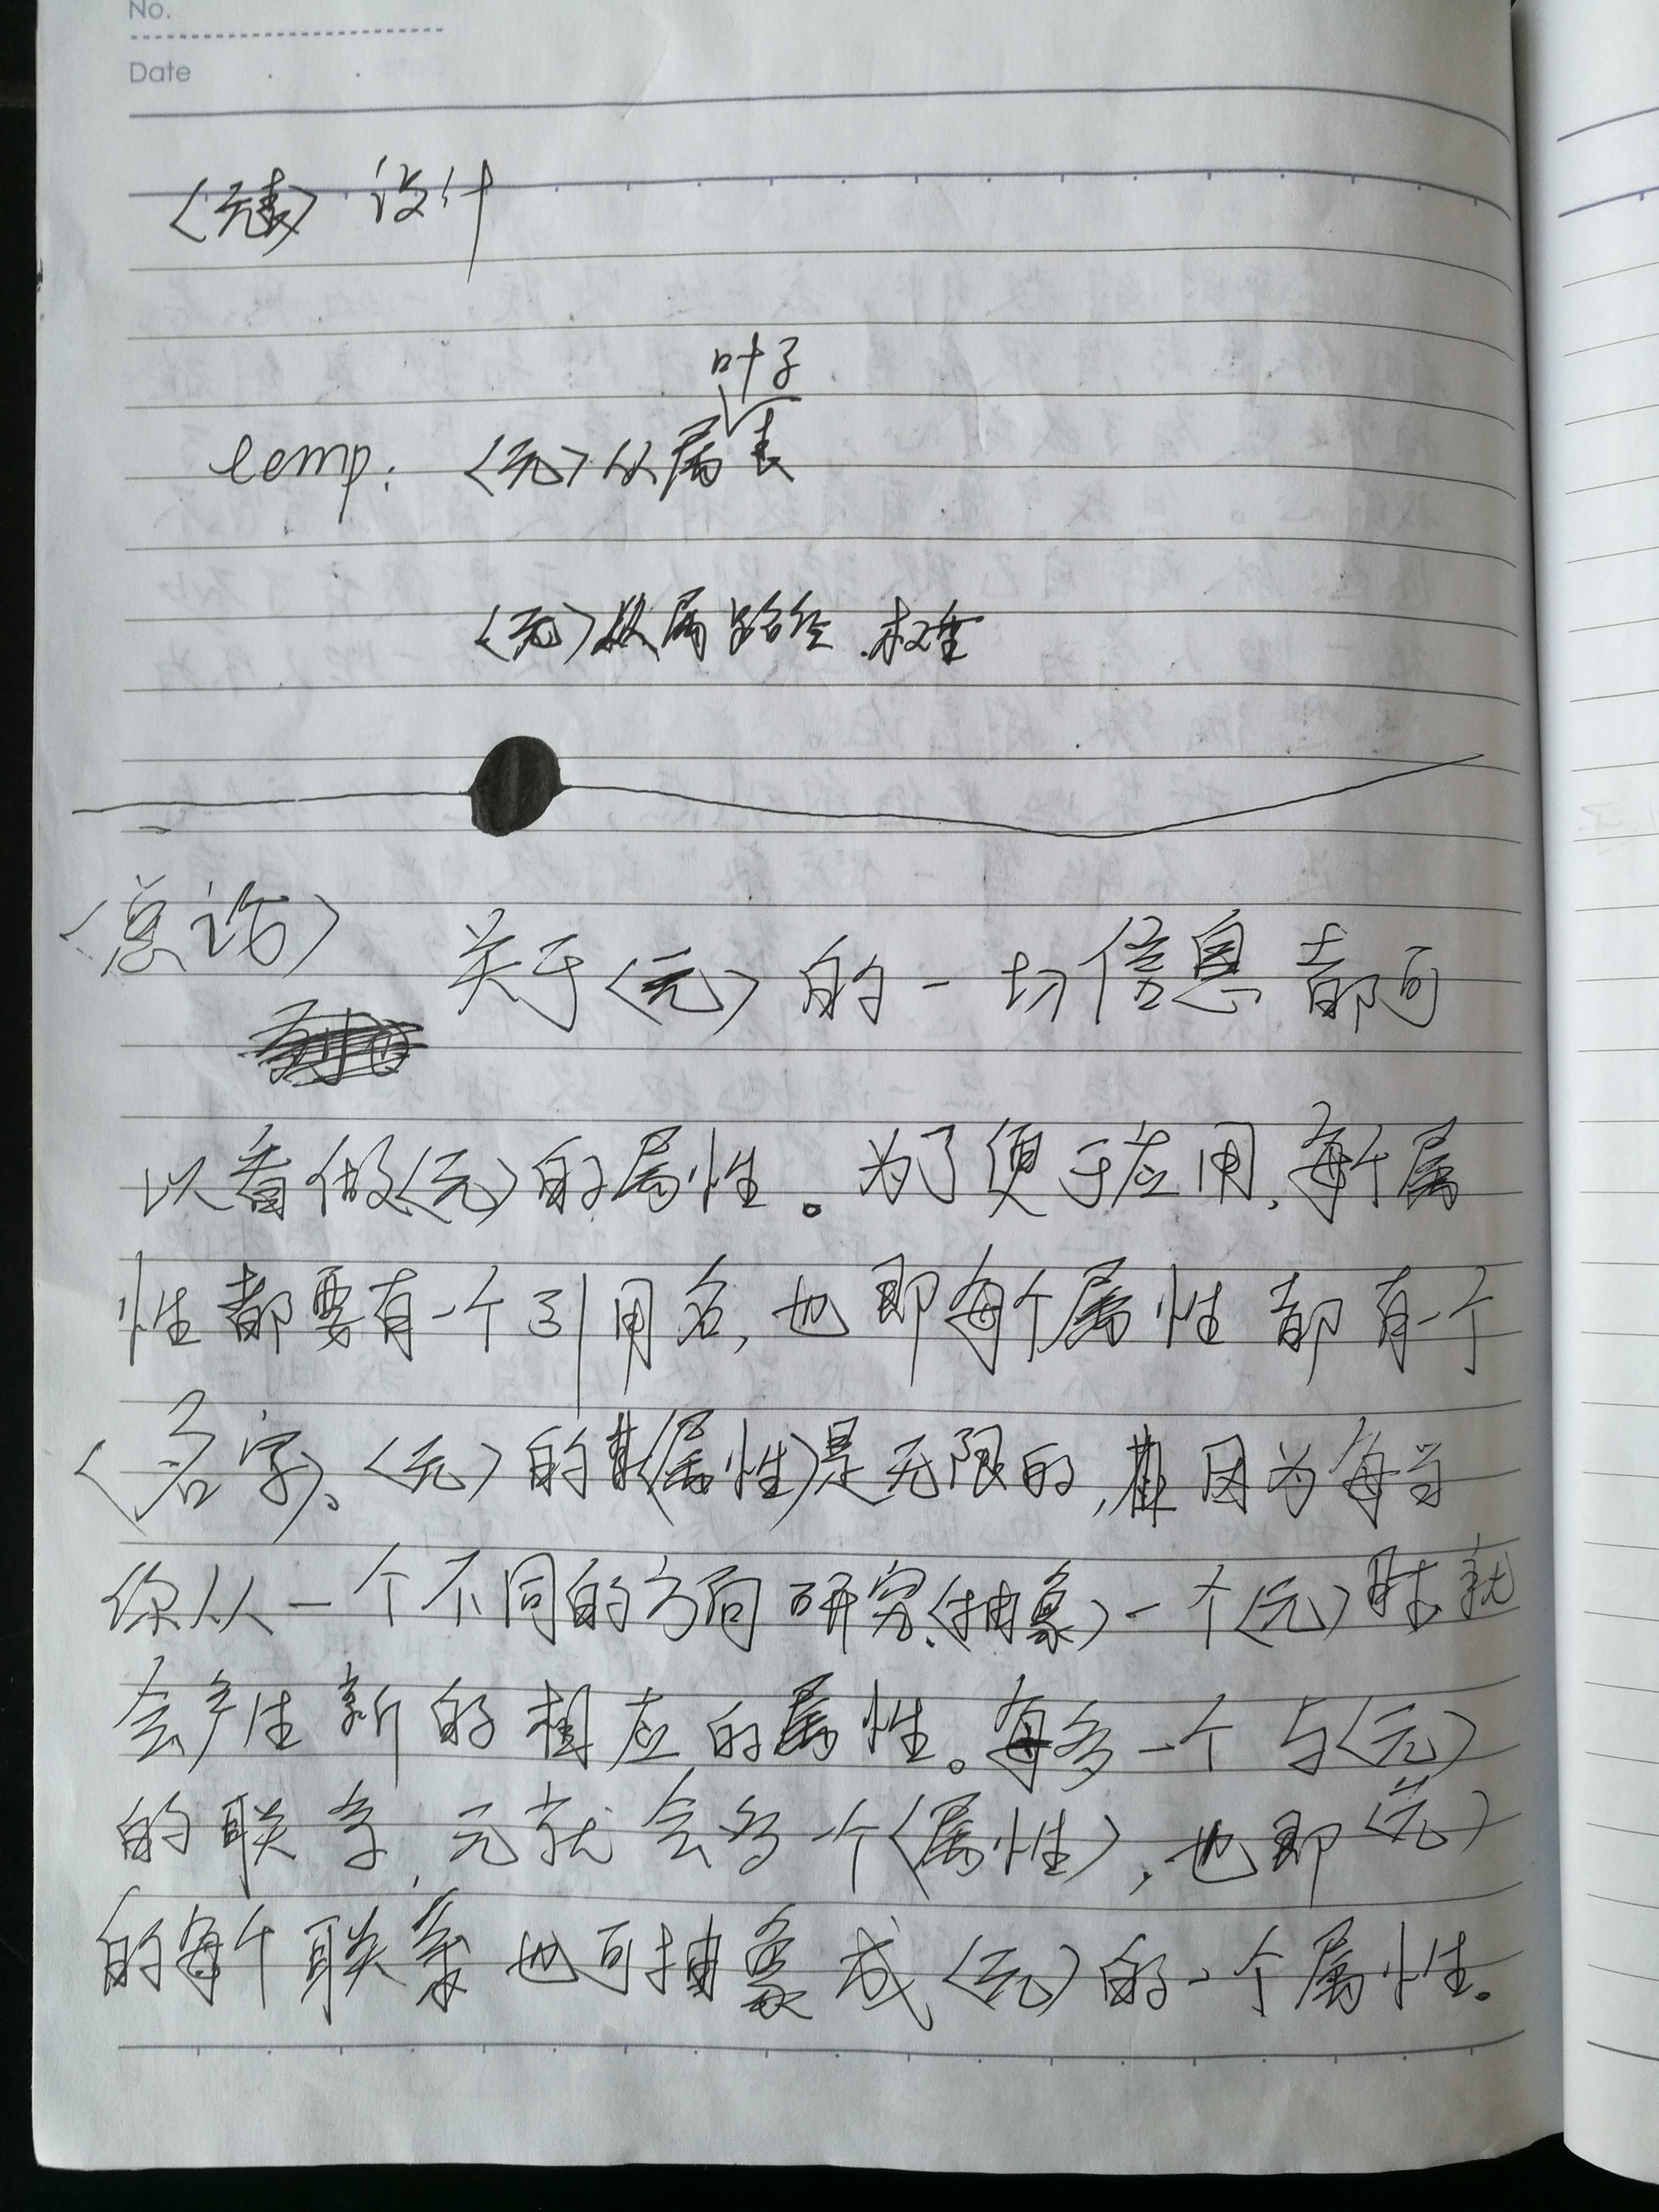 No.
Date
〈元表〉设计
叶子
temp: 〈元〉从属表
〈元〉从属路径
〈总论〉 关于〈元〉的一切信息都可
以看做〈元〉的属性。为了便于应用,每个属
性都要有一个引用名,也即每个属性都有一个
〈名字〉。〈元〉的〈属性〉是无限的,因为每当
你从一个不同的方向研究〈抽象〉一个〈元〉时,就
会产生新的相应的属性。每多一个与〈元〉
的联系,元就会多一个〈属性〉,也即〈元〉
的每个联系也可抽象成〈元〉的一个属性。